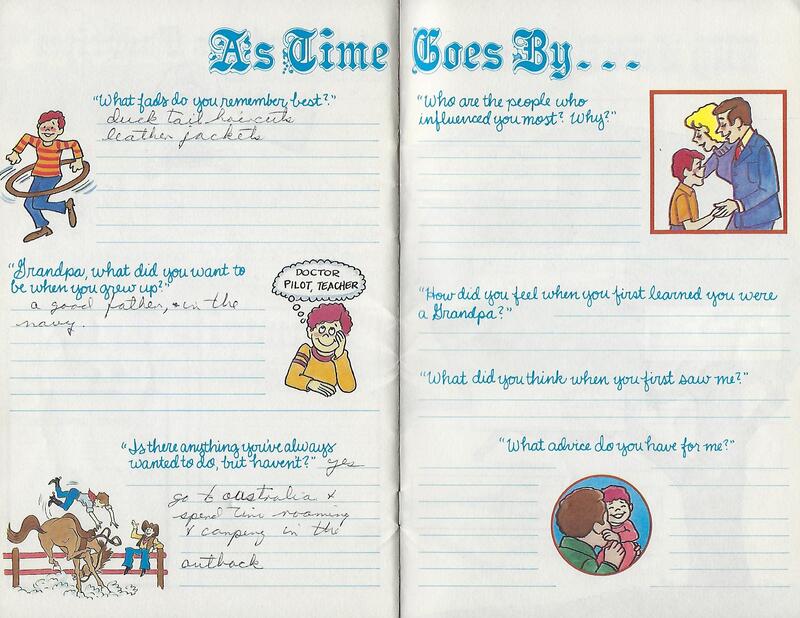 As Time Goes By...
"What fads do you remember best?"
duck tail haircuts
leather jackets
"Grandpa, what did you want to
be when you grew up?"
a good father, & in the
navy.
DOCTOR
PILOT, TEACHER
"Is there anything you've always
wanted to do, but haven't?" yes
go to australia &
spend time roaming
& camping in the
outback
"Who are the people who
influenced you most? Why?"
"How did you feel when you first learned you were
a Grandpa?"
"What did you think when you first saw me?"
"What advice do you have for me?"